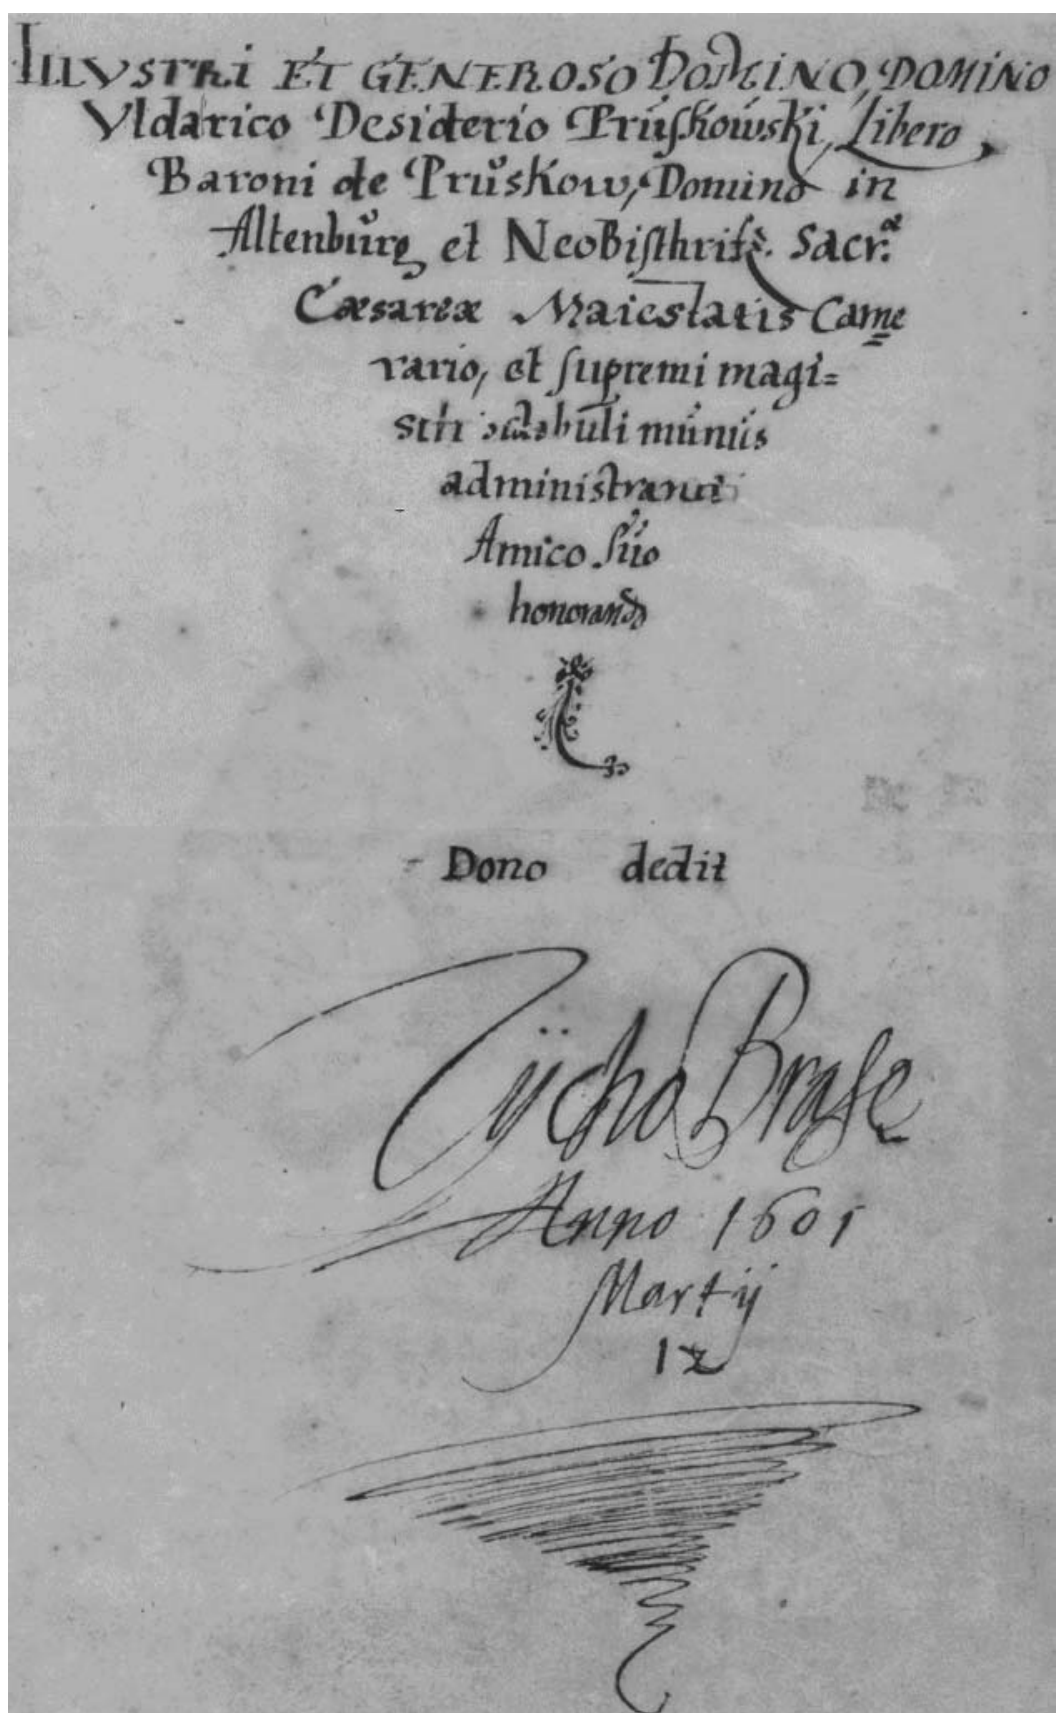 ILLVSTRI ET GENEROSO DOMINO, DOMINO
Vldarico Desiderio Prúskowski, Libero
Baroni de Prúskow, Domino in
Altenbúrg et NeoBisthrits. Sacr.ae
Cæsareæ Maiestatis Came
rario, et supremi magi=
stri stabuli múnús
administranti
Amico súo
honorando
Dono dedit
Tÿcho Brahe
Anno 1601
Martij
12